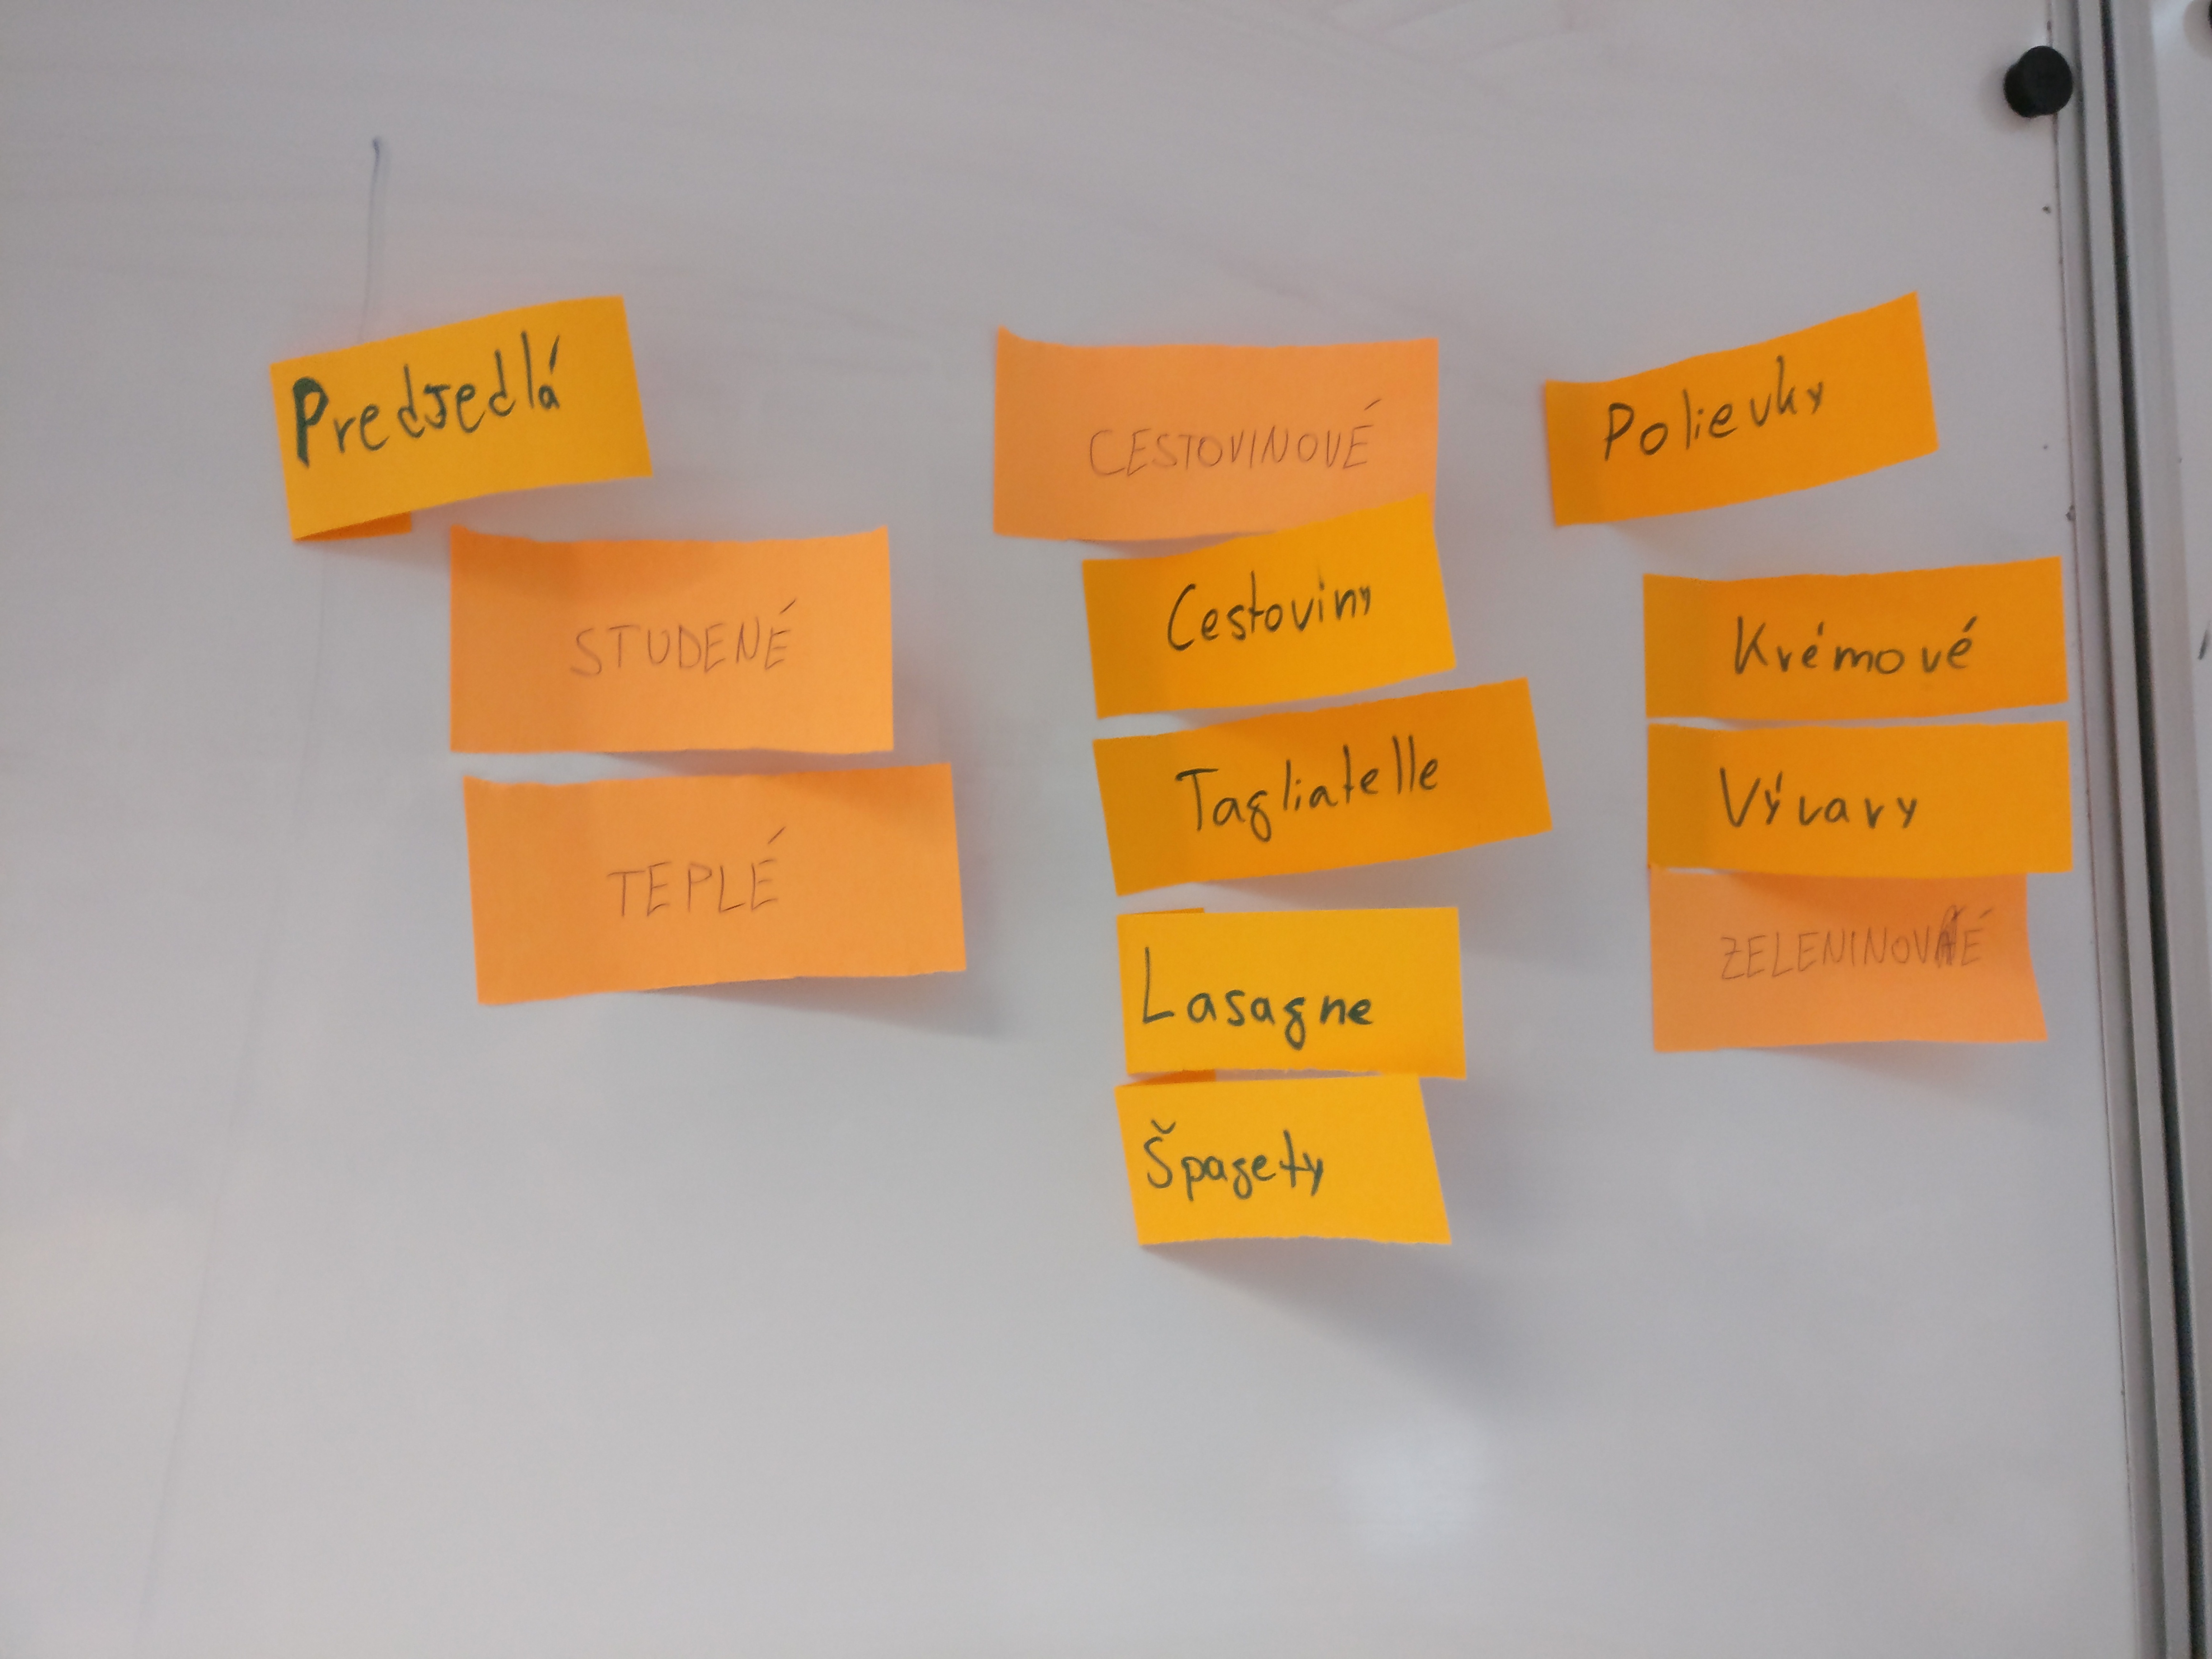 Predjedlá
STUDENÉ
TEPLÉ
CESTOVINOVÉ
Cestoviny
Tagliatelle
Lasagne
Špagety
Polievky
Krémové
Vývary
ZELENINOVÉ